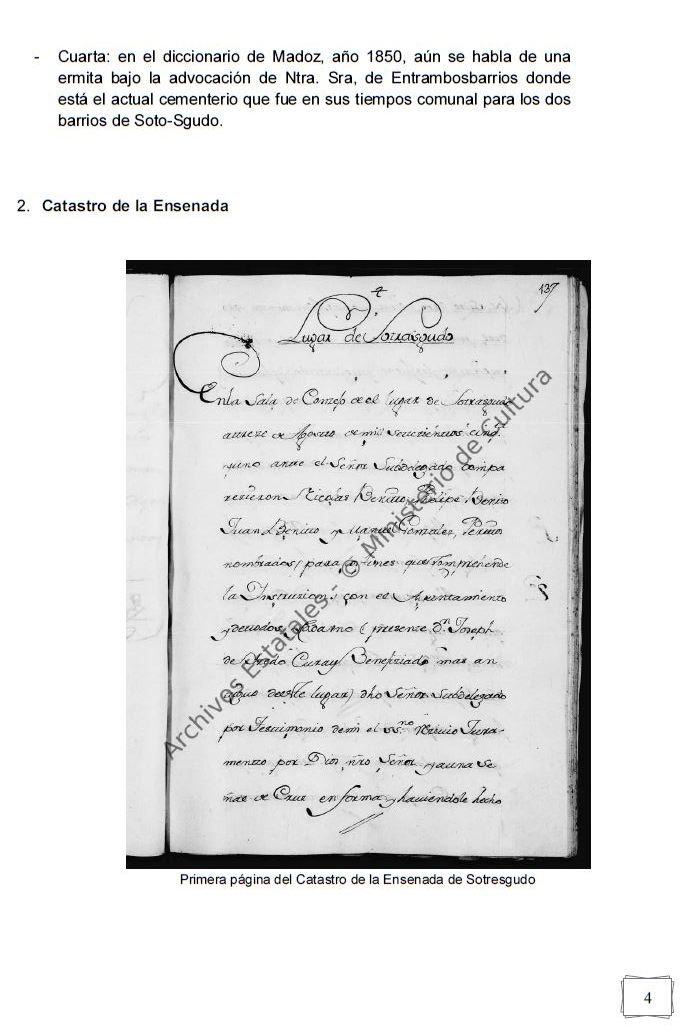 - Cuarta: en el diccionario de Madoz, año 1850, aún se habla de una
ermita bajo la advocación de Ntra. Sra, de Entrambosbarrios donde
está el actual cementerio que fue en sus tiempos comunal para los dos
barrios de Soto-Sgudo.
2. Catastro de la Ensenada
137
Lugar de Sotrasgudo
En la Sala de Conzejo de el lugar de Sotrasgudo
a treze de Agosto de mil setezientos zinq.
y uno ante el Señor Subdelegado Compa
rezieron Nicolas Benito, Phelipe Benito
Juan Benito y Manuel Gonzalez, Peritos
nombrados para los fines que Comprehende
la Instruzion, con el Aiuntamiento
presente Dn. Joseph
de Cura y Benefiziado mas an
tiguo de este lugar) dho Señor Subdelegado
por Testimonio de mi el ss.no rezivio Jura-
mento por Dios nro Señor y a una Se
ñal de Cruz en forma y haviendole hecho
Archivos Estatales - © Ministerio de Cultura
Primera página del Catastro de la Ensenada de Sotresgudo
4